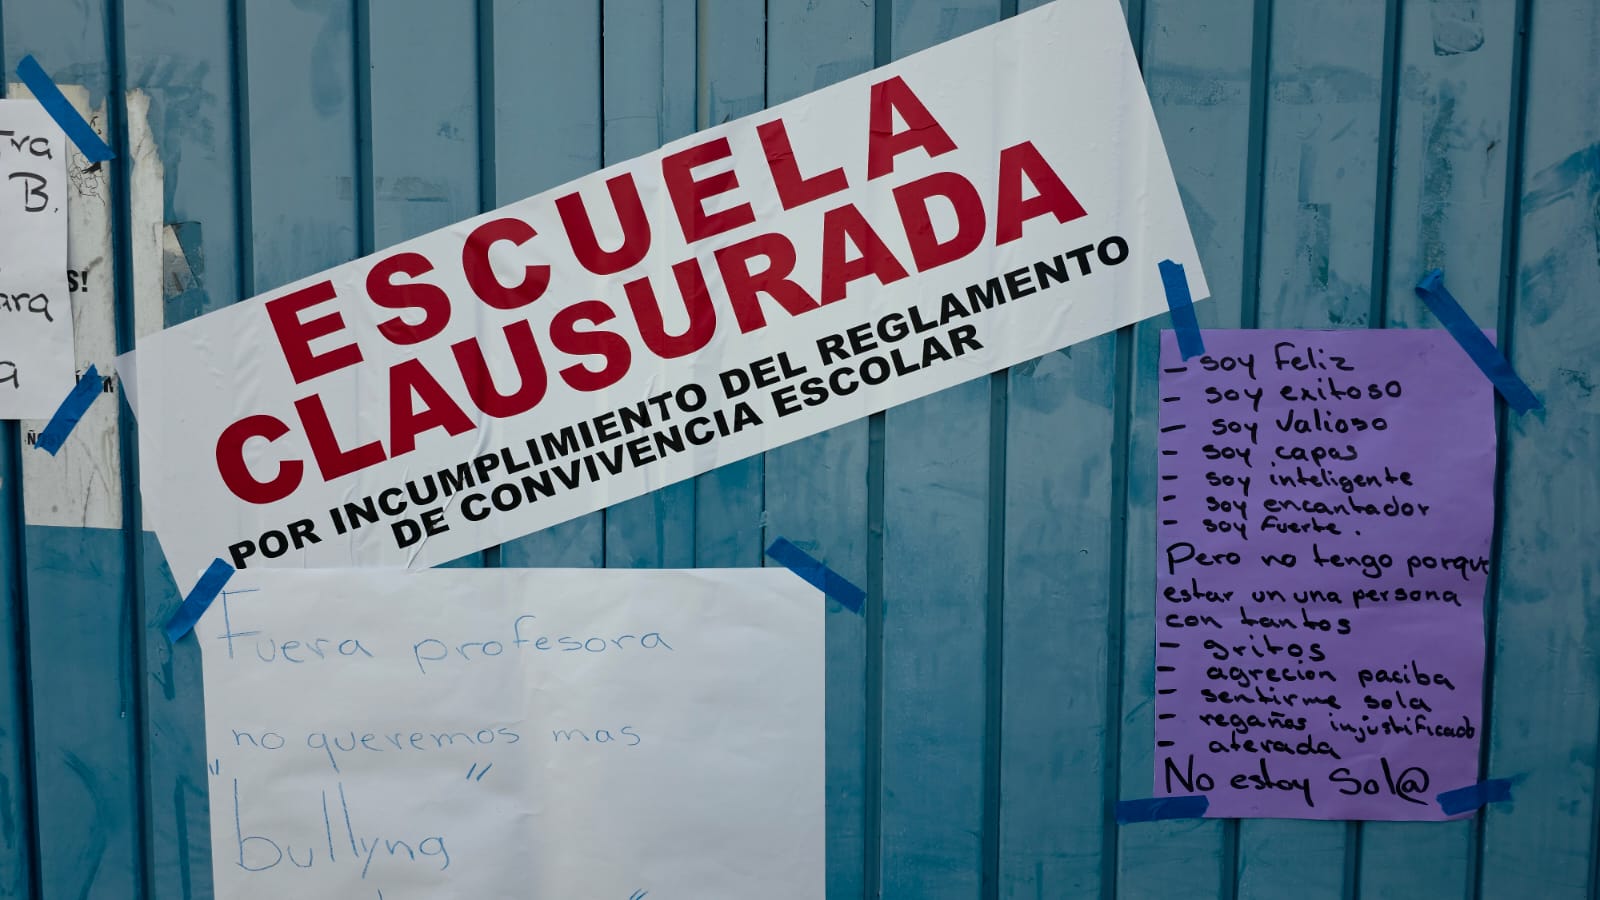 ESCUELA
CLAUSURADA
POR INCUMPLIMIENTO DEL REGLAMENTO
DE CONVIVENCIA ESCOLAR
B.
S!
ara
a
Fuera profesora
no queremos mas
"bullyng"
- soy feliz
- soy exitoso
- soy valioso
- soy capas
- soy inteligente
- soy encantador
- soy fuerte.
Pero no tengo porque
estar un una persona
con tantos
- gritos
- agrecion paciba
- sentirme sola
- regaños injustificado
- aterada
No estoy Sol@